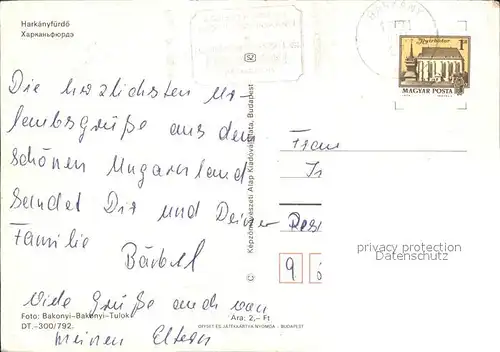 Harkányfürdő
Харканьфюрдэ
HARKÁNY
Nyírbátor
1 Ft
MAGYAR POSTA
Die herzlichsten Ur-
laubsgrüße aus dem
schönen Ungarnland
sendet Dir und Deiner
Familie
Bärbel
Viele Grüße auch von
meinen Eltern
Képzőművészeti Alap Kiadóvállalata, Budapest
Frau
9
privacy protection
Datenschutz
Foto: Bakonyi–Bakonyi–Tulok
DT.–300/792.
Ára: 2,– Ft
OFFSET ÉS JÁTÉKKÁRTYA NYOMDA – BUDAPEST